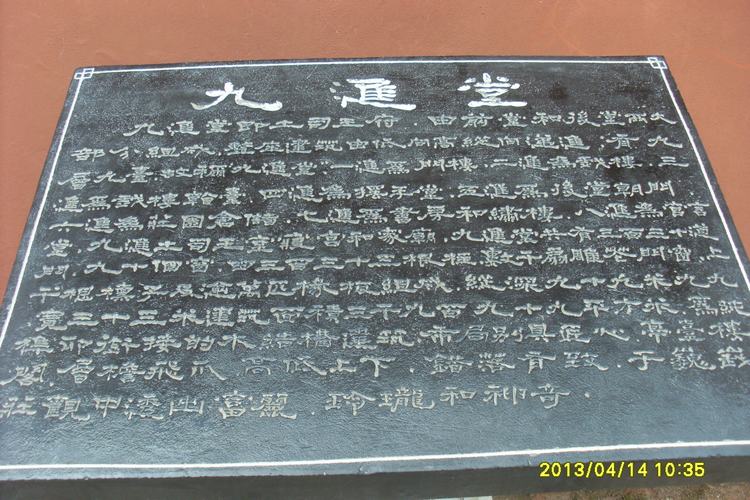 九進堂
九進堂即土司王府 由前堂和後堂兩大
部分組成 整座建築由低向高縱向遞進 有九
層九臺 故稱九進堂 一進爲門樓 二進爲戲樓 三
進爲戲樓 四進爲擺手堂 五進爲後堂朝門
六進爲莊園倉儲 七進爲書房和繡樓 八進爲官言
堂 九進土司王寢宮和家廟 九進堂共有三百三十三道
門 九十個窗 四百三十三根柱 數千雕花門窗 上
千根檁子及逾萬匹椽板組成 縱深九十九米 九
寬三十三米 建筑面積三千九百九十九平方米 爲純
榫卯銜接的木結構建筑 布局別具匠心 亭臺樓
閣 層檐飛爪 高低上下 錯落有致 于巍峨
壯觀中透出富麗 玲瓏和神奇
2013/04/14 10:35